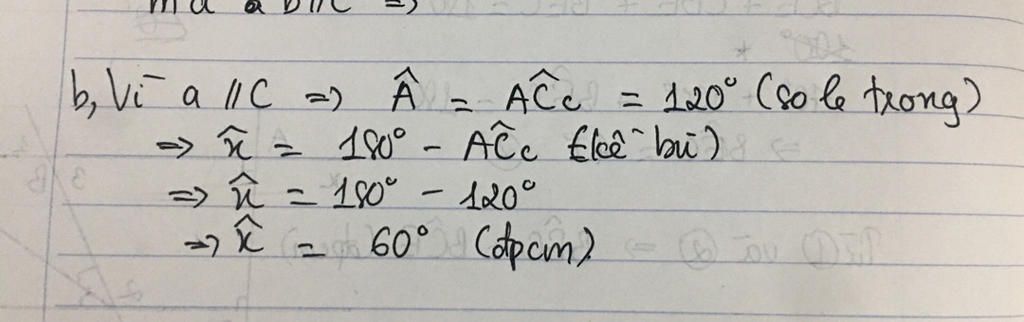 b, Vì a // C => Â = AĈc = 120° (so le trong)
=> x̂ = 180° - AĈc (kề bù)
=> x̂ = 180° - 120°
=> x̂ = 60° (đpcm)